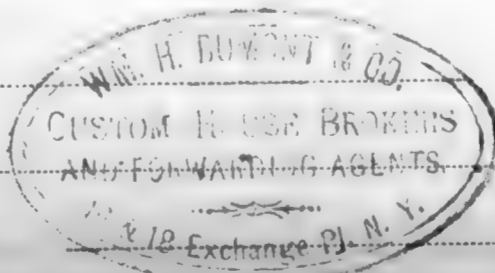 WM. H. DUMONT & CO.
CUSTOM HOUSE BROKERS
AND FORWARDING AGENTS.
& 18 Exchange Pl. N. Y.